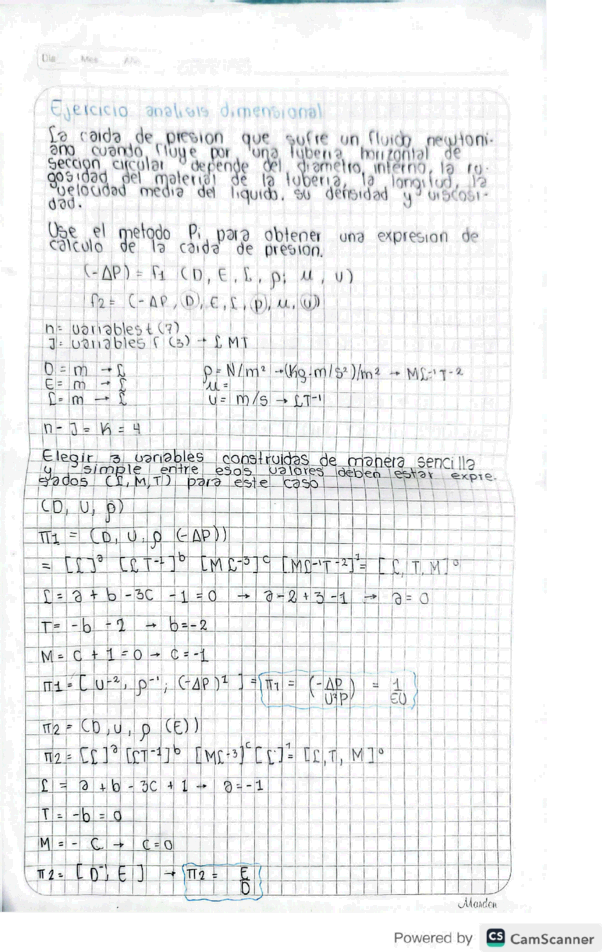 Dia Mes Año
Ejercicio analisis dimensional
La caida de presion que sufre un fluido newtoni-
ano cuando fluye por una tuberia horizontal de
seccion circular depende del diametro, interno, la ru-
gosidad del material de la tuberia, la longitud, la
velocidad media del liquido, su densidad y viscosi-
dad.
Use el metodo Pi para obtener una expresion de
calculo de la caida de presion.
(-ΔP) = f1 (D, E, L, ρ, μ, υ)
f2 = (-ΔP, D), E, L, ρ, μ, υ)
n= variables t (7)
J= variables f (3) → L MT
D = m → L ρ = N/m² → (Kg·m/s²)/m² → ML⁻¹T⁻²
E = m → L μ =
L = m → L υ = m/s → LT⁻¹
n - J = K = 4
Elegir 3 variables construidas de manera sencilla
y simple entre esos valores deben estar expre-
sados (L, M, T) para este caso
(D, U, ρ)
π1 = (D, U, ρ (-ΔP))
= [L]ᵃ [LT⁻¹]ᵇ [ML⁻³]ᶜ [ML⁻¹T⁻²]¹ = [L, T, M]⁰
L = a + b - 3C - 1 = 0 → a - 2 + 3 - 1 → a = 0
T = -b - 2 → b = -2
M = C + 1 = 0 → C = -1
π1 = [U⁻², ρ⁻¹, (-ΔP)¹] = π1 = (-ΔP/U²ρ) = 1/EU
π2 = (D, U, ρ (E))
π2 = [L]ᵃ [LT⁻¹]ᵇ [ML⁻³]ᶜ [L]¹ = [L, T, M]⁰
L = a + b - 3C + 1 → a = -1
T = -b = 0
M = - C → C = 0
π2 = [D⁻¹, E] → π2 = E/D
Masden
Powered by CS CamScanner